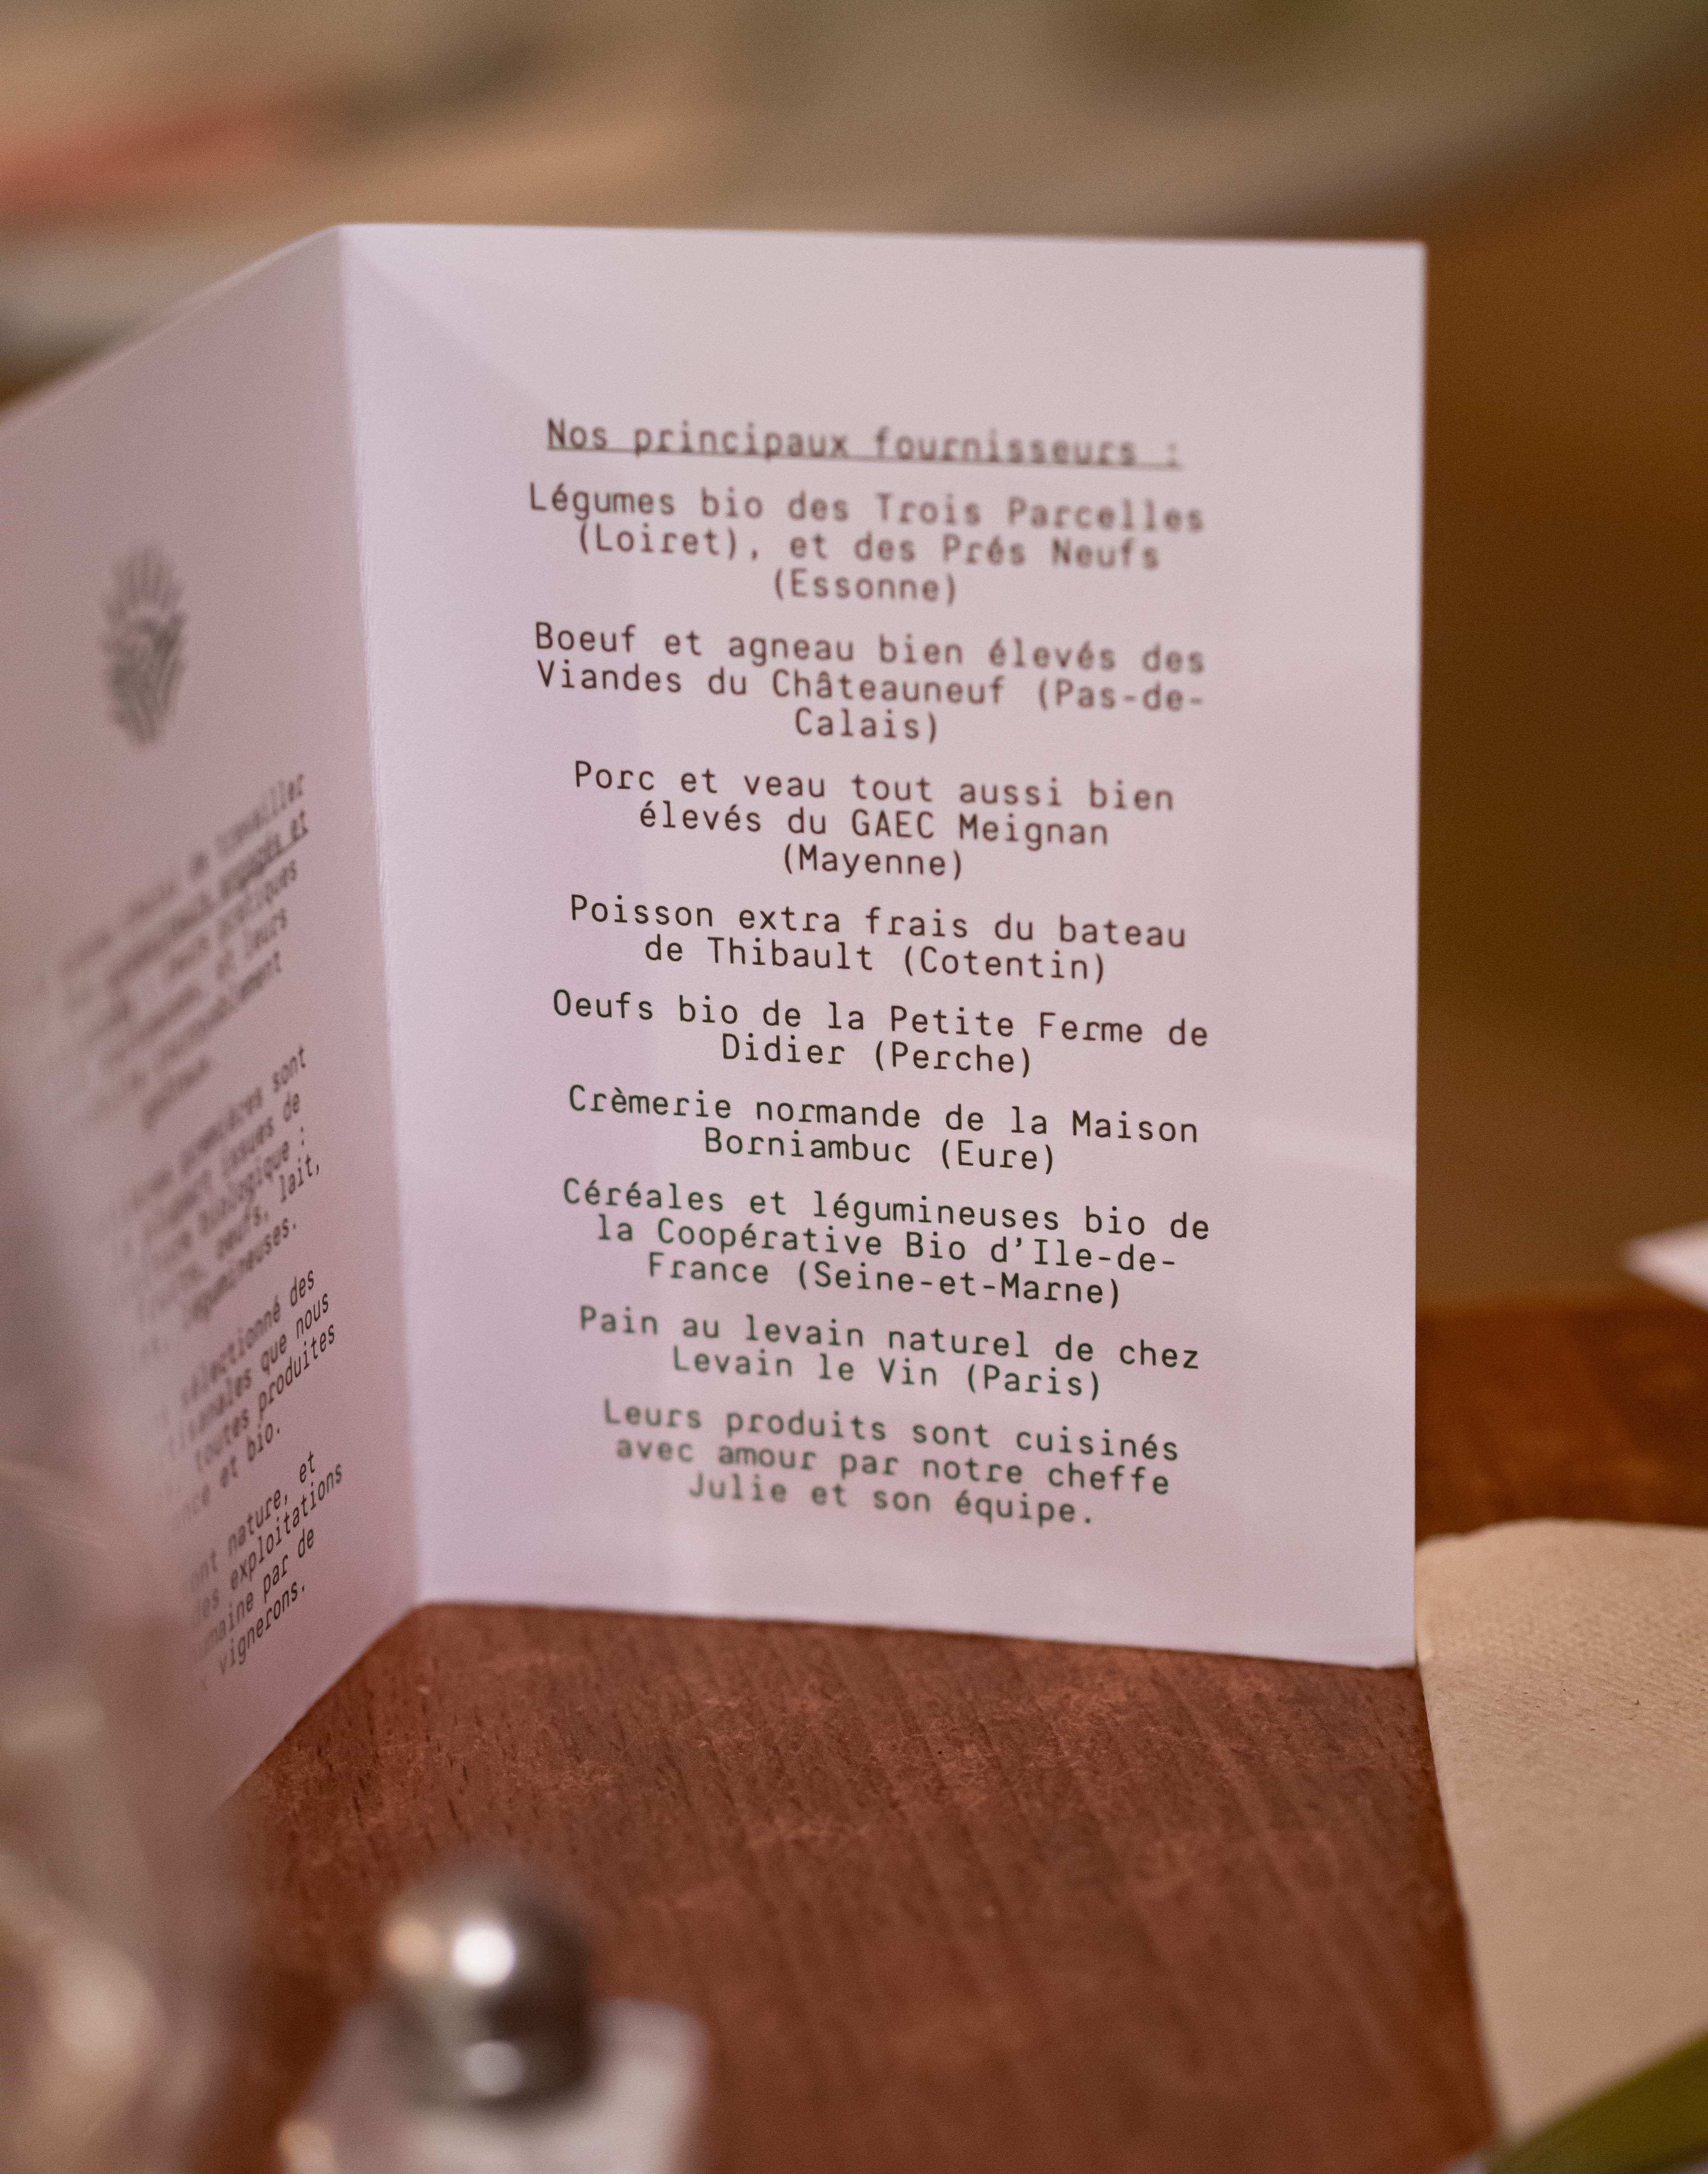 travailler
engagés et
pratiques
et leurs
sont
issues de
biologique :
oeufs, lait,
légumineuses.
sélectionné des
que nous
toutes produites
et bio.
nature, et
exploitations
par de
vignerons.
Nos principaux fournisseurs :
Légumes bio des Trois Parcelles
(Loiret), et des Prés Neufs
(Essonne)
Boeuf et agneau bien élevés des
Viandes du Châteauneuf (Pas-de-
Calais)
Porc et veau tout aussi bien
élevés du GAEC Meignan
(Mayenne)
Poisson extra frais du bateau
de Thibault (Cotentin)
Oeufs bio de la Petite Ferme de
Didier (Perche)
Crèmerie normande de la Maison
Borniambuc (Eure)
Céréales et légumineuses bio de
la Coopérative Bio d’Ile-de-
France (Seine-et-Marne)
Pain au levain naturel de chez
Levain le Vin (Paris)
Leurs produits sont cuisinés
avec amour par notre cheffe
Julie et son équipe.